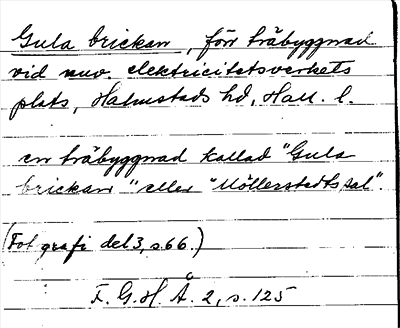 Gula brickan, förr träbyggnad
vid nuv. elektricitetsverkets
plats, Halmstads hd, Hall. l.
en träbyggnad kallad "Gula
brickan" eller "Möllerstedts sal".
(Fotografi del 3, s. 66.)
F. G. H. Å. 2, s. 125